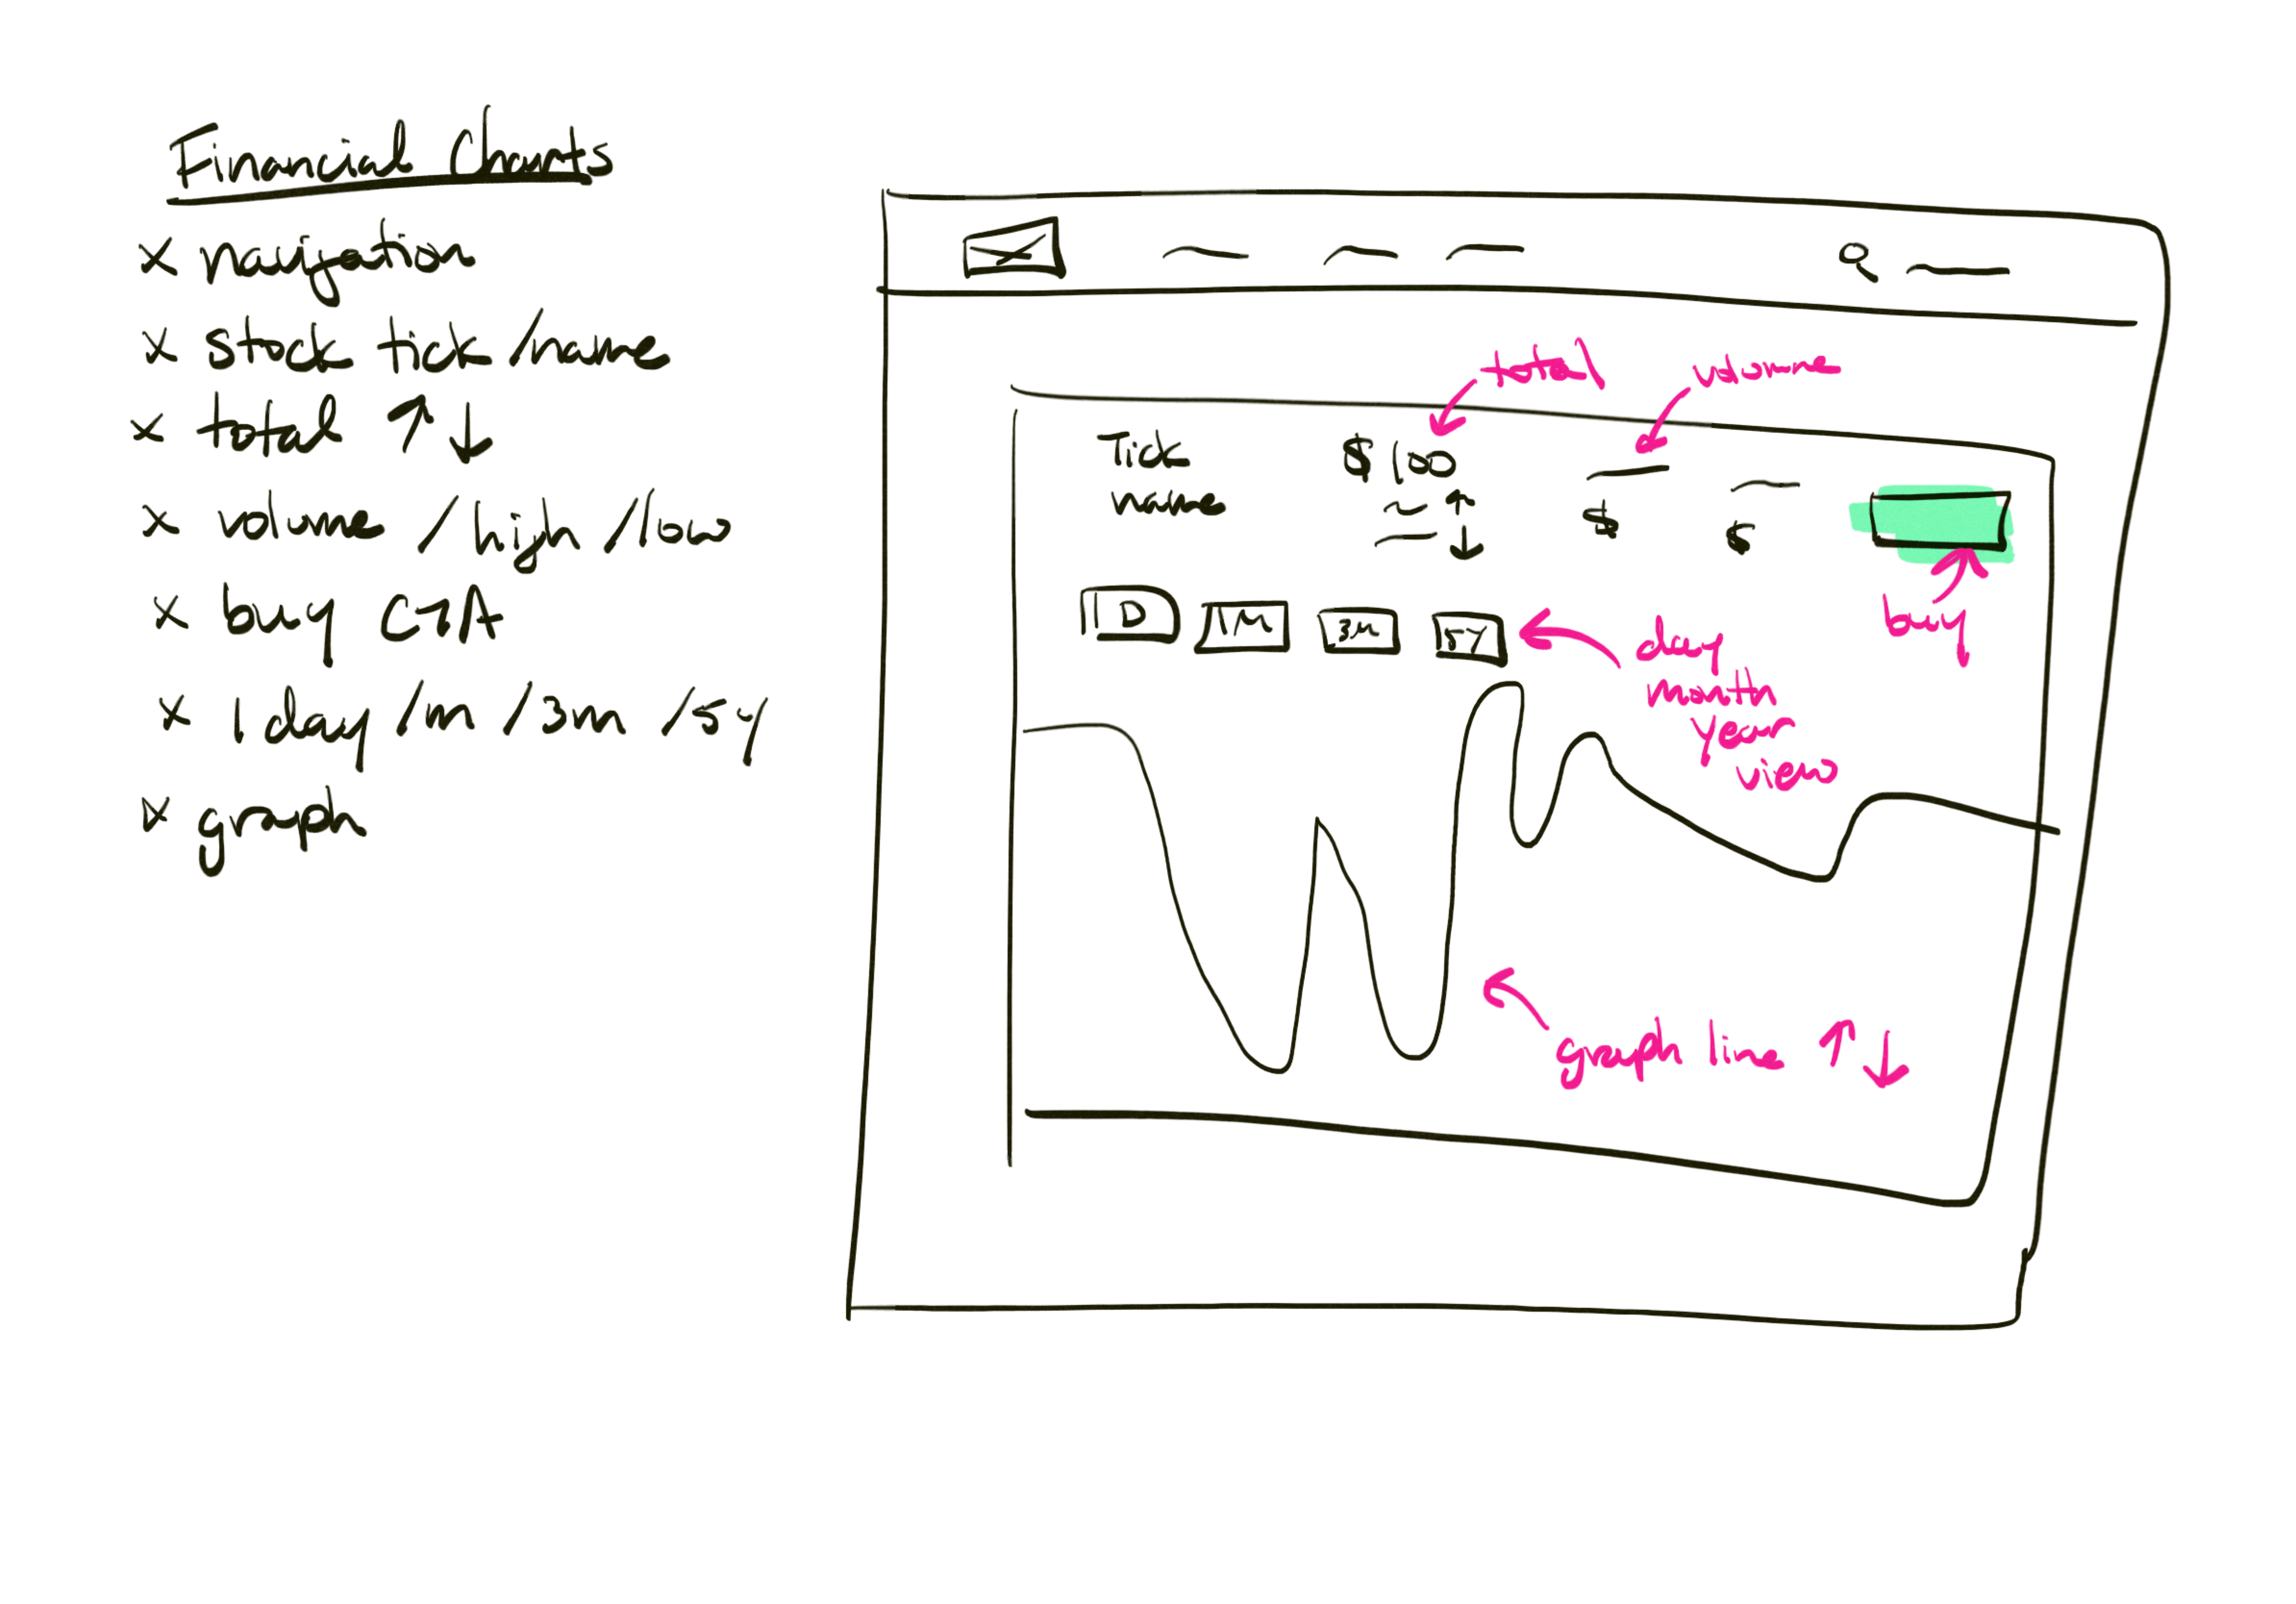 Financial Charts
x navigation
x stock tick/name
x total ↑↓
x volume / high / low
x buy CTA
x 1 day / m / 3m / 5y
x graph
total
volume
Tick
name
$100
~ ↑
↓
$
$
buy
1D
1M
3M
5Y
day
month
year
view
graph line ↑↓